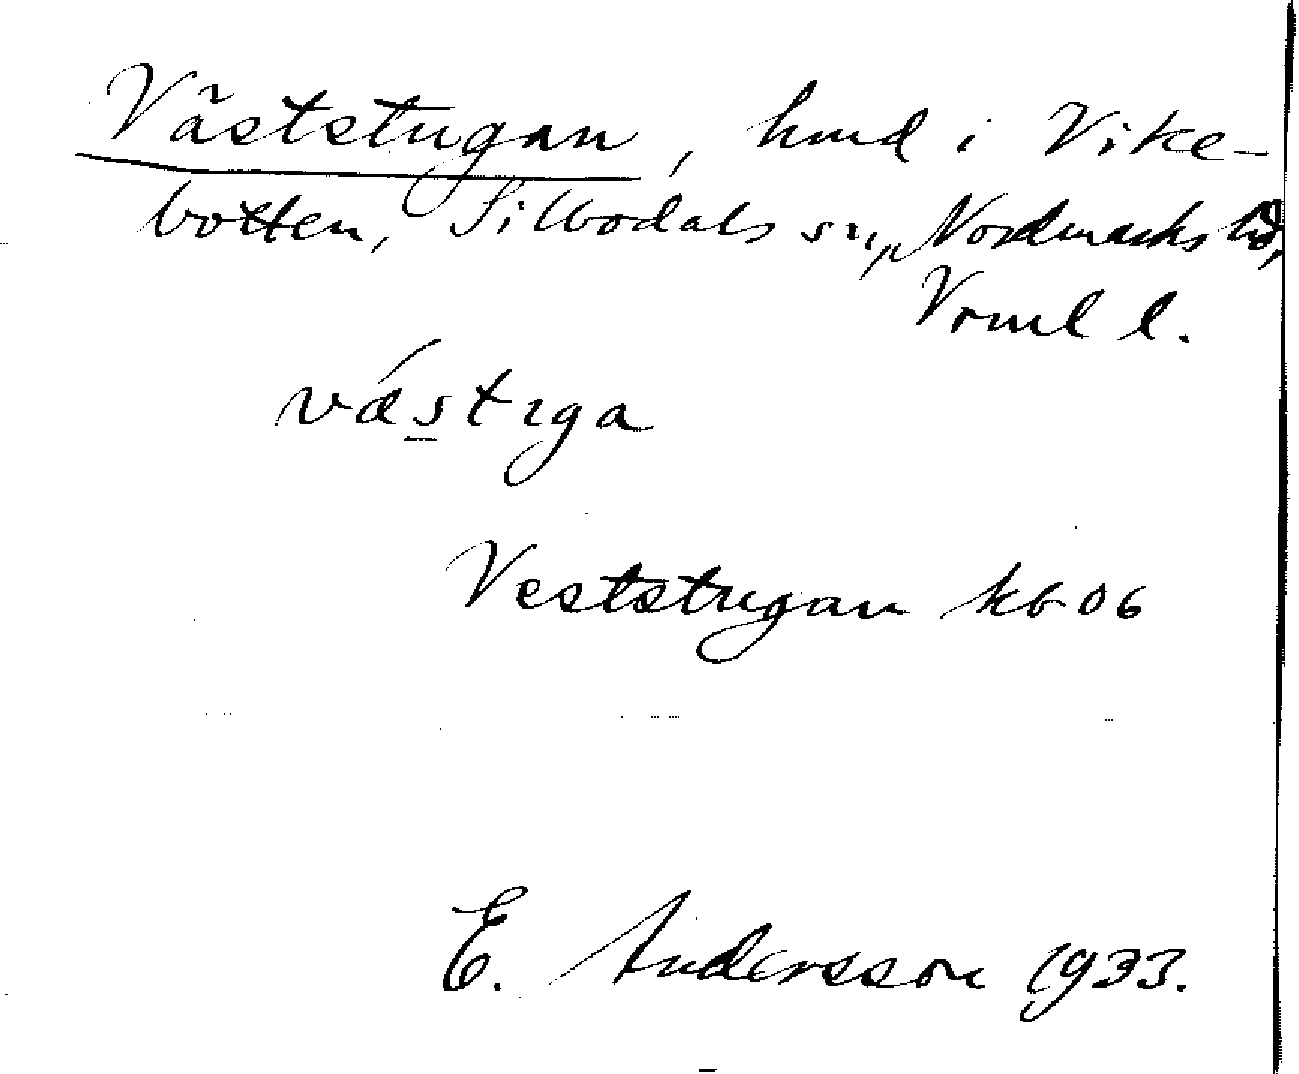 Väststugan, hmd i Vike-
botten, Silbodals sn, Nordmarks hd,
Vrml l.
vǽstɩga
Veststugan kb 06
E. Andersson 1933.